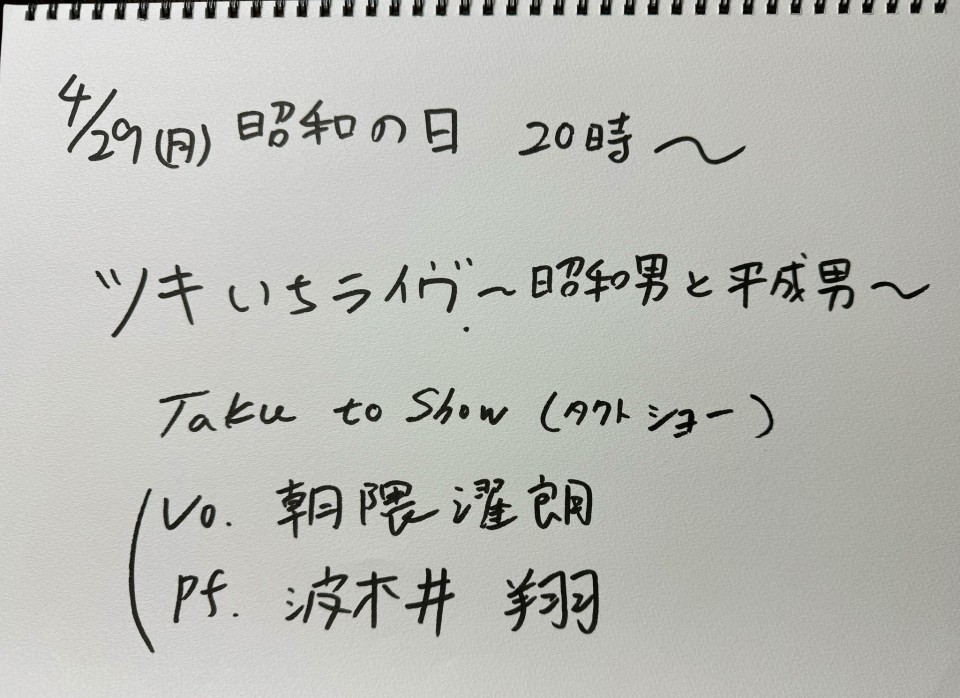 4/29(月) 昭和の日 20時〜
ツキいちライヴ〜昭和男と平成男〜
Taku to Show (タクト ショー)
Vo. 朝隈濯朗
Pf. 波木井 翔